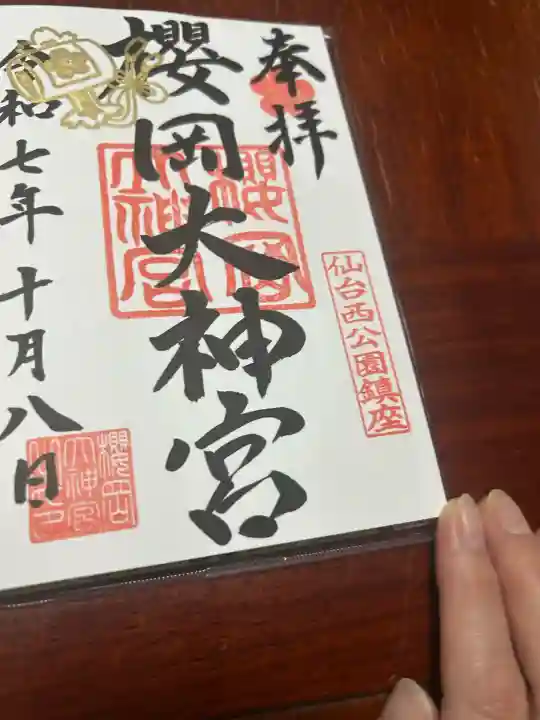 奉拝
仙台西公園鎮座
櫻岡大神宮
櫻岡大神宮
令和七年十月八日